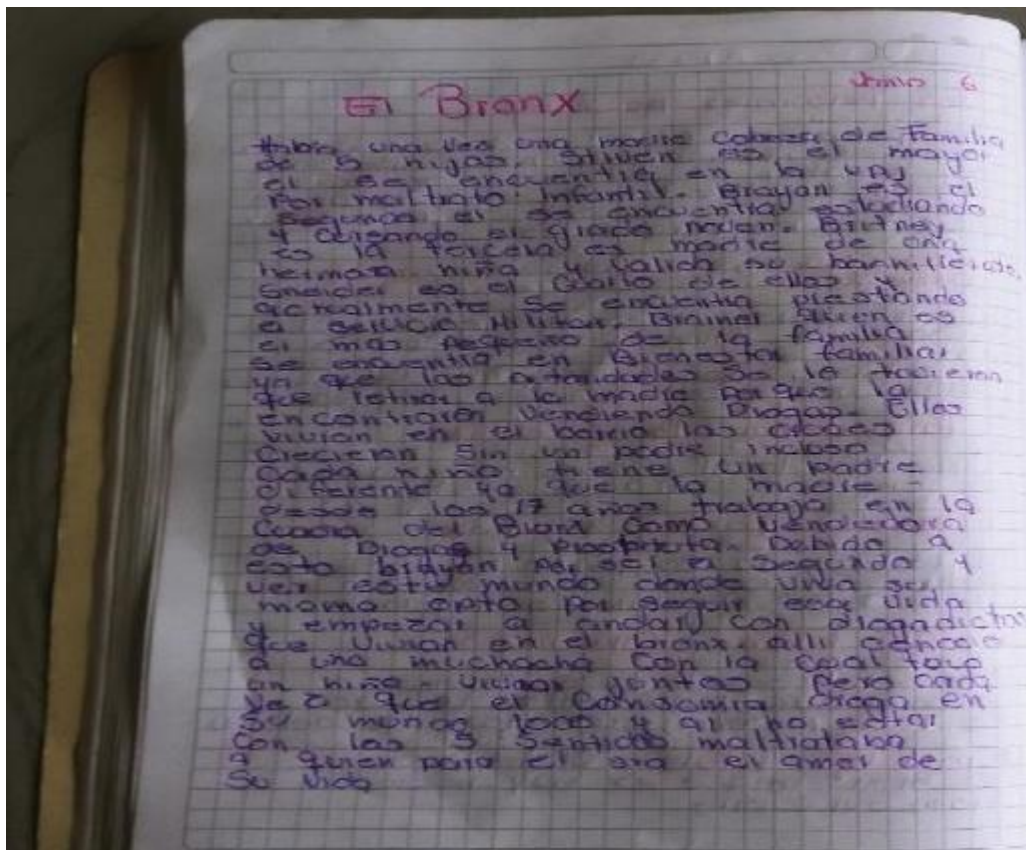 El Bronx
Junio 6
Habia una vez una madre cabeza de Familia
de 5 hijos. Stiven es el mayor
el se encuentra en la
Por maltrato infantil. Brayan es el
segundo el se encuentra estudiando
y cursando el grado noveno. Britney
es la tercera es madre de una
hermosa niña y valida su
es el cuarto de ellos y
actualmente se encuentra prestando
el servicio Militar. Brainer quien es
el mas pequeño de la familia
se encuentra en Bienestar familiar
ya que las autoridades se lo tuvieron
que retirar a la madre porque la
encontraron vendiendo Drogas. Ellos
vivian en el barrio las cruces
crecieron Sin un padre incluso
cada niño tiene un padre
diferente ya que la madre
desde los 17 años trabajo en la
Cuadra del Bronx como vendedora
de Drogas y prostituta. Debido a
esto brayan por ser el segundo y
ver este mundo donde vivia su
mama opto por seguir esa vida
y empezar a andar con drogadictos
que vivian en el bronx. alli conocio
a una muchacha con la cual tuvo
un niño. vivian juntos pero cada
vez que el consumia Droga en
su mundo loco y al no estar
con los 5 sentidos maltrataba
a quien para el era el amor de
su vida